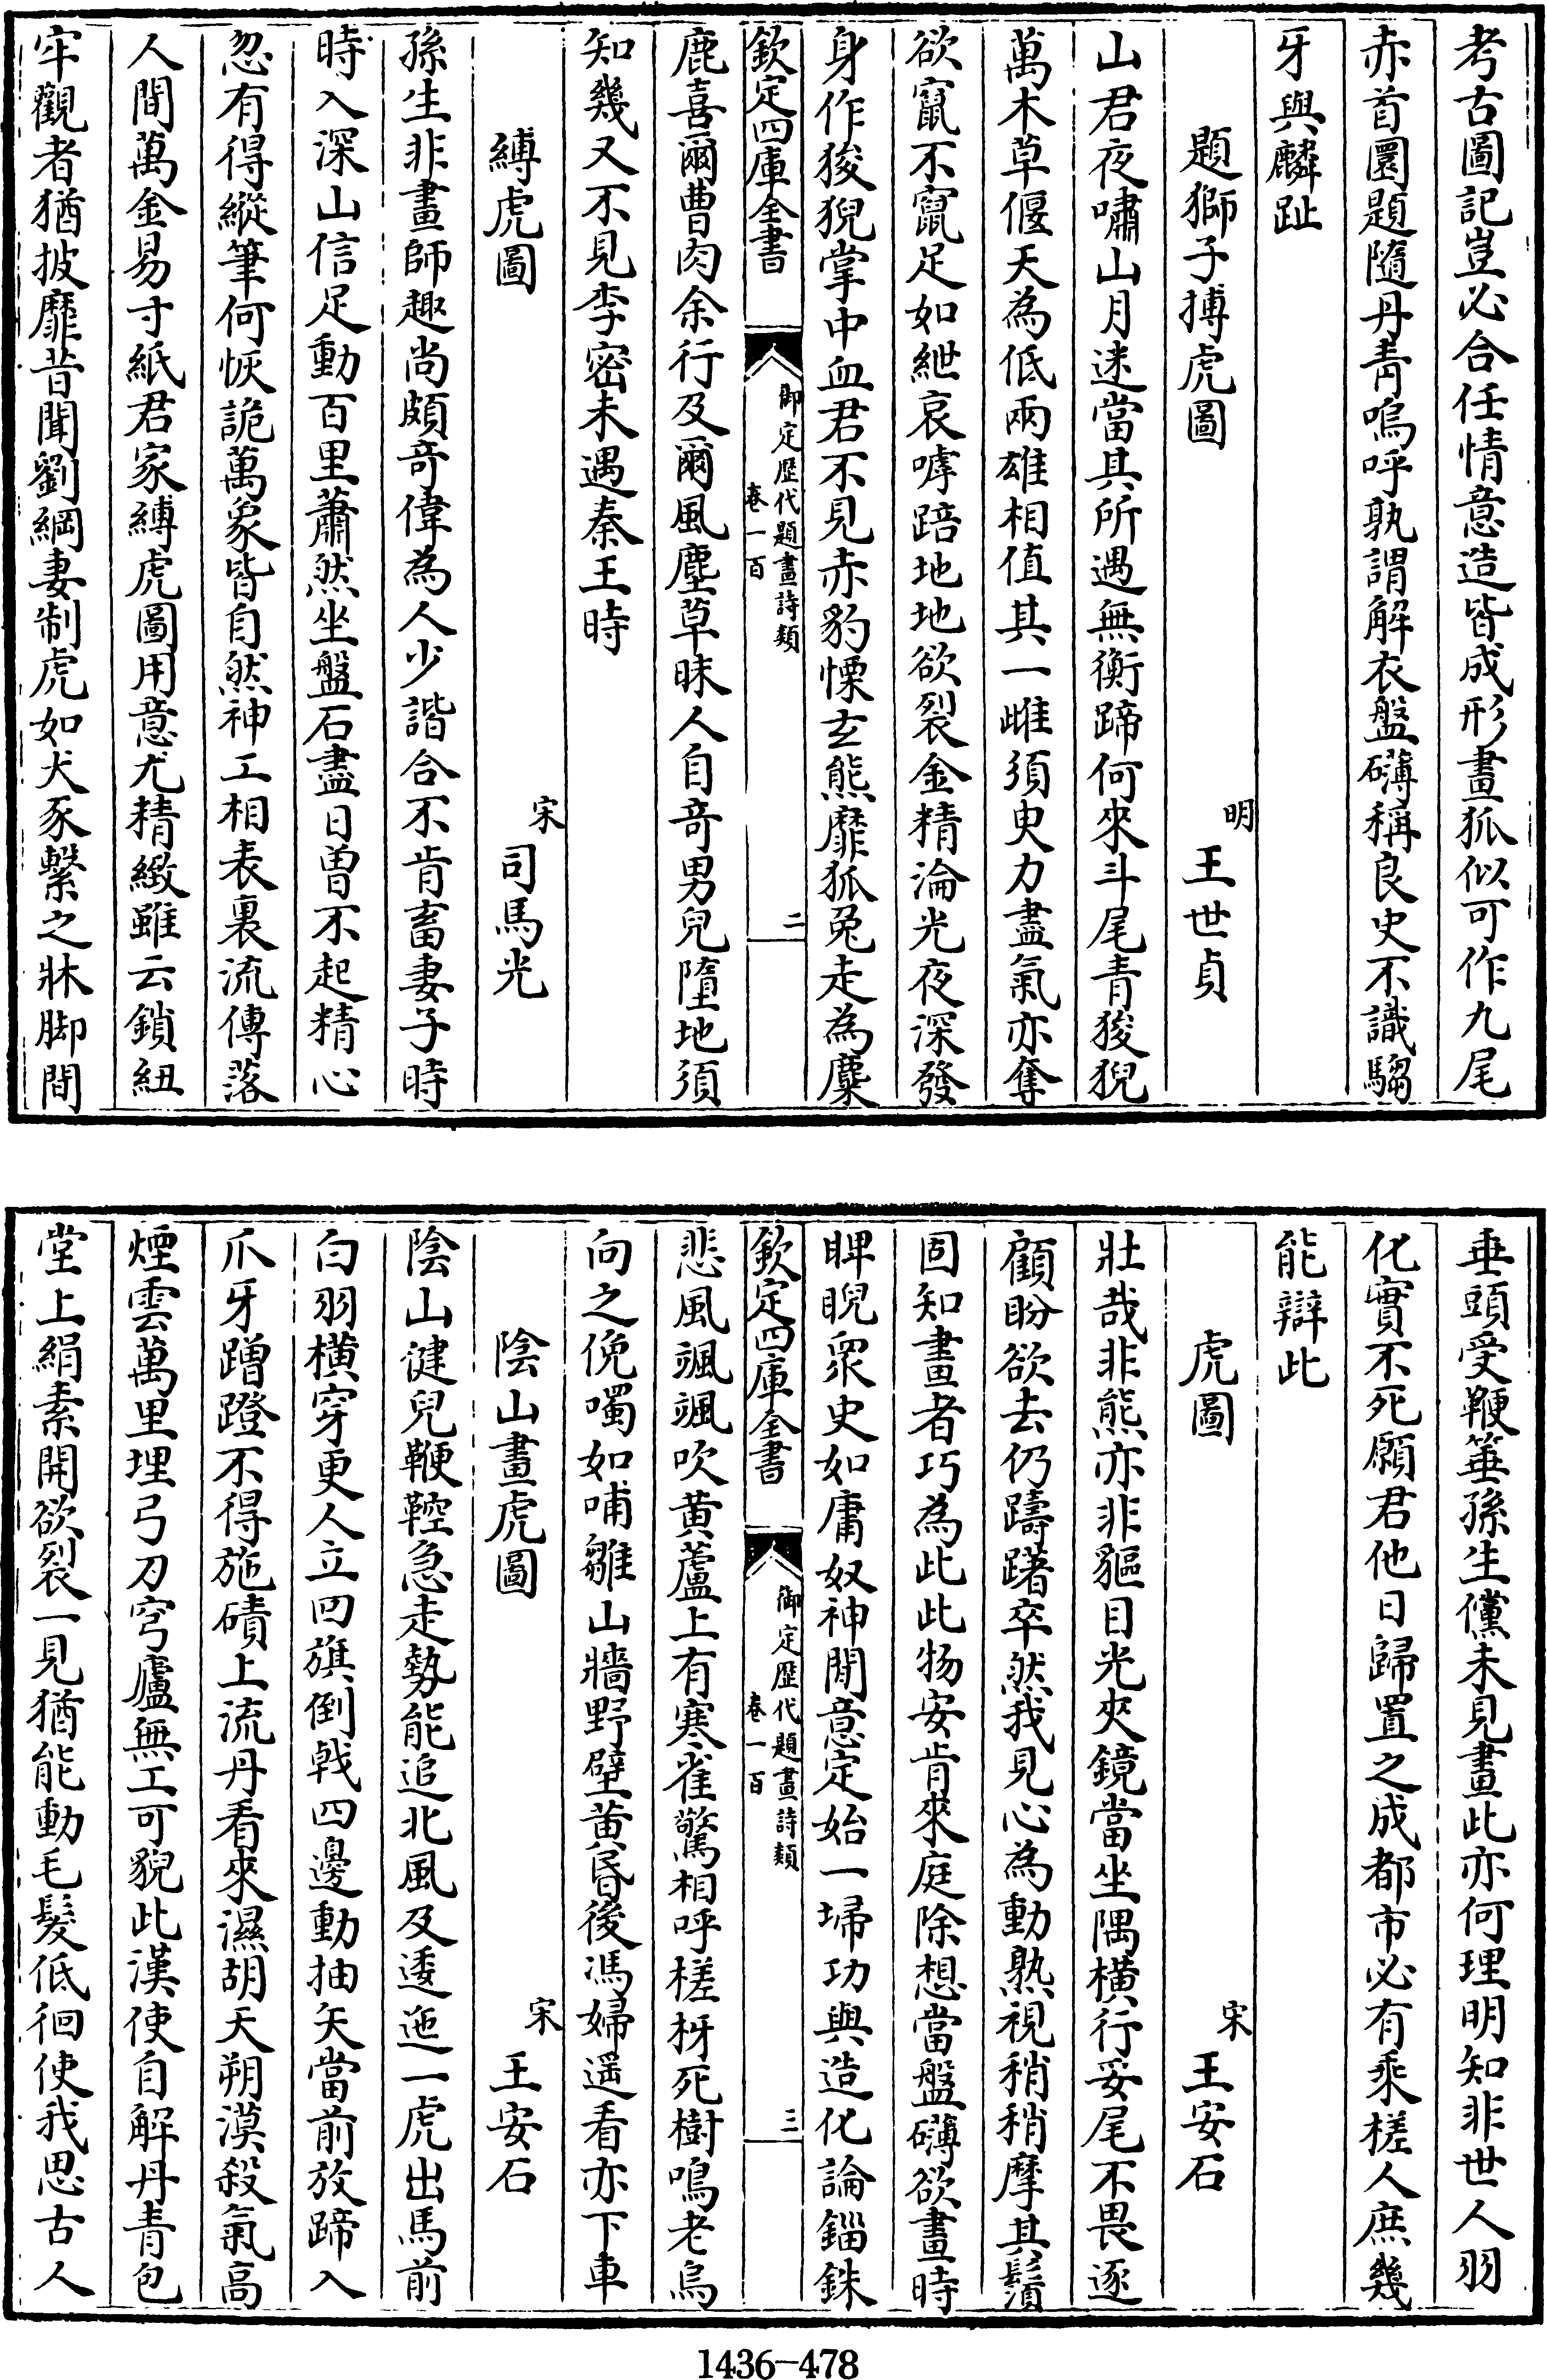 考古圖記豈必合任情意造皆成形畫狐似可作九尾
赤首圜題隨丹青嗚呼孰謂解衣盤礴稱良史不識騶
牙與麟趾
題獅子搏虎圖
明
王世貞
山君夜嘯山月迷當其所遇無衡蹄何來斗尾青狻猊
萬木草偃天為低兩雄相值其一雌須臾力盡氣亦奪
欲竄不竄足如紲哀嘷踣地地欲裂金精淪光夜深發
身作狻猊掌中血君不見赤豹慄玄熊靡狐兔走為麋
欽定四庫全書
御定歴代題畫詩類
卷一百
二
鹿喜爾曹肉余行及爾風塵草昧人自竒男兒墮地須
知幾又不見李密未遇秦王時
縛虎圖
宋
司馬光
孫生非畫師趣尚頗竒偉為人少諧合不肯畜妻子時
時入深山信足動百里蕭然坐盤石盡日曽不起精心
忽有得縱筆何恢詭萬象皆自然神工相表裏流傳落
人間萬金易寸紙君家縛虎圖用意尤精緻雖云鎖紐
牢觀者猶披靡昔聞劉綱妻制虎如犬豕繫之牀脚間
垂頭受鞭箠孫生儻未見畫此亦何理明知非世人羽
化實不死願君他日歸置之成都市必有乘槎人庶幾
能辯此
虎圖
宋
王安石
壯哉非熊亦非貙目光夾鏡當坐隅横行妥尾不畏逐
顧盼欲去仍躊躇卒然我見心為動熟視稍稍摩其鬚
固知畫者巧為此此物安肯來庭除想當盤礴欲畫時
睥睨衆史如庸奴神閒意定始一埽功與造化論錙銖
欽定四庫全書
御定歴代題畫詩類
卷一百
三
悲風颯颯吹黄蘆上有寒雀驚相呼槎枒死樹鳴老烏
向之俛噣如哺雛山牆野壁黄昏後馮婦遥看亦下車
陰山畫虎圖
宋
王安石
陰山健兒鞭鞚急走勢能追北風及逶迤一虎出馬前
白羽横穿更人立回旗倒㦸四邊動抽矢當前放蹄入
爪牙蹭蹬不得施磧上流丹看來濕胡天朔漠殺氣高
煙雲萬里埋弓刀穹廬無工可貌此漢使自解丹青包
堂上絹素開欲裂一見猶能動毛髮低徊使我思古人
1436-478